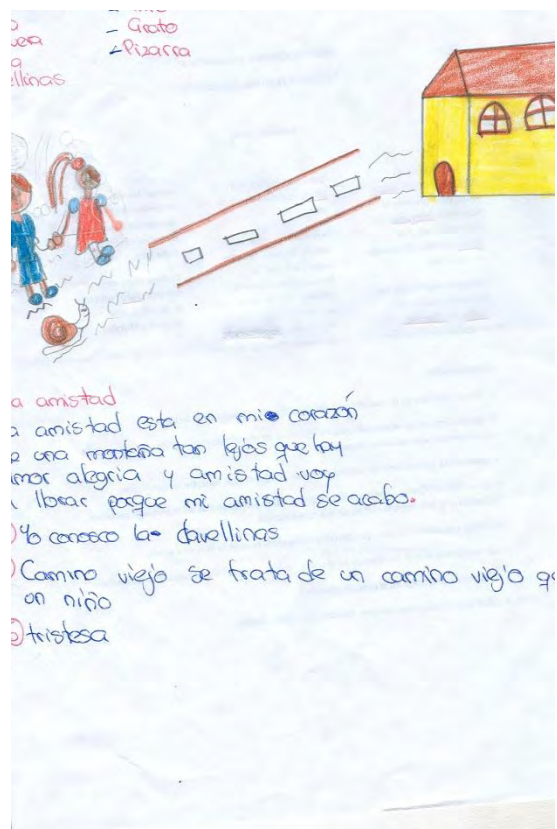 - Grato
vera
- Pizarra
a
ellinas
a amistad
a amistad esta en mi corazón
e una montaña tan lejos que hay
mor alegria y amistad voy
llorar porque mi amistad se acabo.
) Yo conosco la clavellinas
) Camino viejo se trata de un camino viejo q
un niño
tristesa